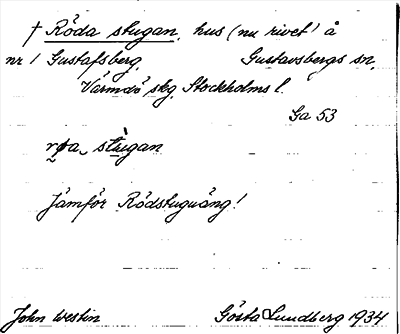 † Röda stugan, hus (nu rivet) å
nr 1 Gustafsberg, Gustavsbergs sn,
Värmdö skg, Stockholms l.
Ga 53
stùgan
Jämför Rödstuguäng!
John Westin Gösta Lundberg 1934